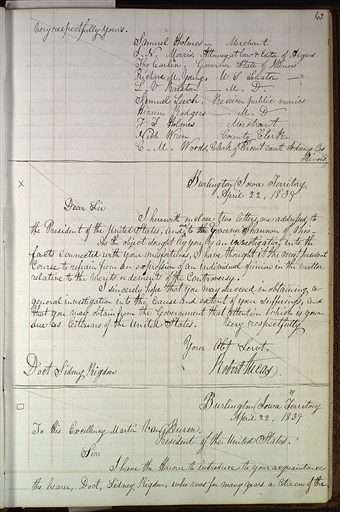 42
Very respectfully yours.
Samuel Holmes — Merchant
I. N. Morris, Attorney at Law & Editor of Argus
Tho Carlin, Governor State of Illinois
Richard M. Young, U S Senator
L. V. Ralston — M. D
Samuel Leech, Receiver public monies
Hiram Rodgers — M. D
J T Holmes Merchant
Nich Wren County Clerk
C. M. Woods, Clerk of Circuit Court Adams Co.
Illinois.
x
Burlington, Iowa Territory,
April 22, 1839.
Dear Sir
I herewith enclose two letters, one addressed to
the President of the United States, and to the Governor Shannon of Ohio.
In the object sought by you, by an investigation into the
facts connected with your misfortunes, I have thought it the most prudent
Course to refrain from an expression of an individual opinion in the matter
relative to the merits or demerits of the Controversy.
I sincerely hope that you may succeed in obtaining, a
general investigation into the Cause and extent of your sufferings, and
that you may obtain from the Government that attention which is your
due as Citizens of the United States. Very respectfully
Your Obt Servt.
Doct Sidney Rigdon Robert Lucas
Burlington Iowa Territory
April 22, 1839.
To His Excellency Martin Van Buren.
President of the United States.
Sir
I have the Honour to introduce to your acquaintance
the bearer, Doct, Sidney, Rigdon, who was for many years a Citizen of the